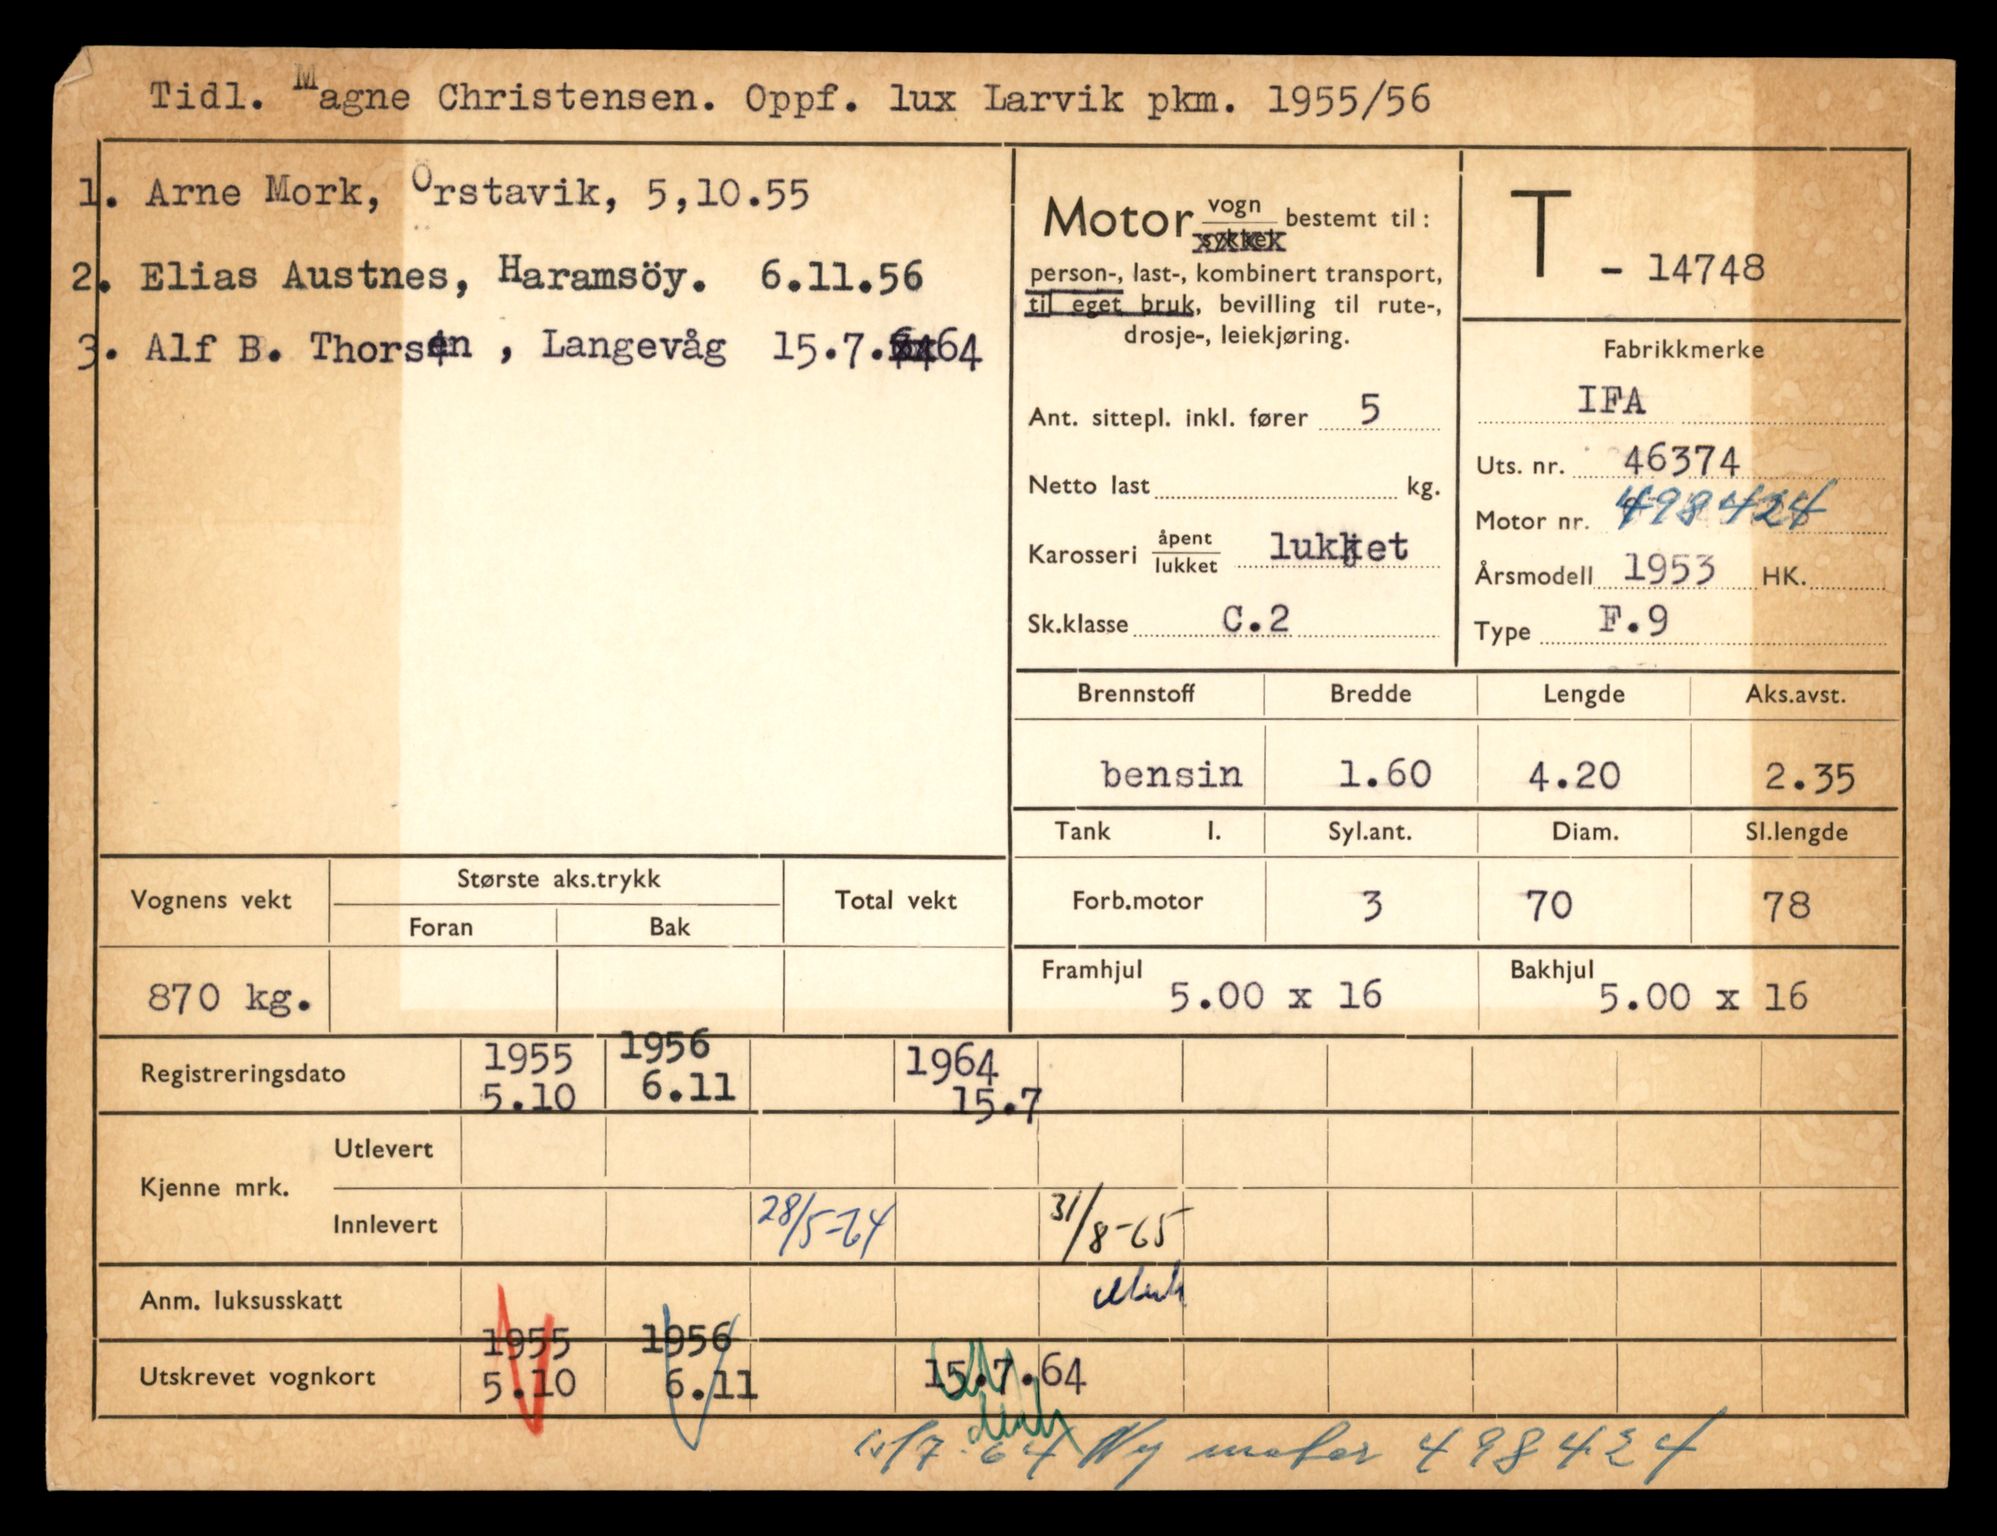 Tidl. Magne Christensen. Oppf. lux Larvik pkm. 1955/56
1. Arne Mork, Örstavik, 5,10.55
2. Elias Austnes, Haramsöy. 6.11.56
3. Alf B. Thorsen , Langevåg 15.7.64
Motor vogn bestemt til:
person-, last-, kombinert transport,
til eget bruk, bevilling til rute-,
drosje-, leiekjøring.
Ant. sittepl. inkl. fører 5
Netto last kg.
Karosseri åpent lukket lukket
Sk.klasse C.2
T - 14748
Fabrikkmerke
IFA
Uts. nr. 46374
Motor nr. 498424
Årsmodell 1953 HK.
Type F.9
Brennstoff Bredde Lengde Aks.avst.
bensin 1.60 4.20 2.35
Tank l. Syl.ant. Diam. Sl.lengde
Forb.motor 3 70 78
Framhjul 5.00 x 16 Bakhjul 5.00 x 16
Vognens vekt Største aks.trykk Total vekt
Foran Bak
870 kg.
Registreringsdato 1955 1956 1964
5.10 6.11 15.7
Kjenne mrk. Utlevert
Innlevert 28/5-64 31/8-65
Anm. luksusskatt
1955 1956
Utskrevet vognkort 5.10 6.11 15.7.64
/7-64 Ny motor 498424